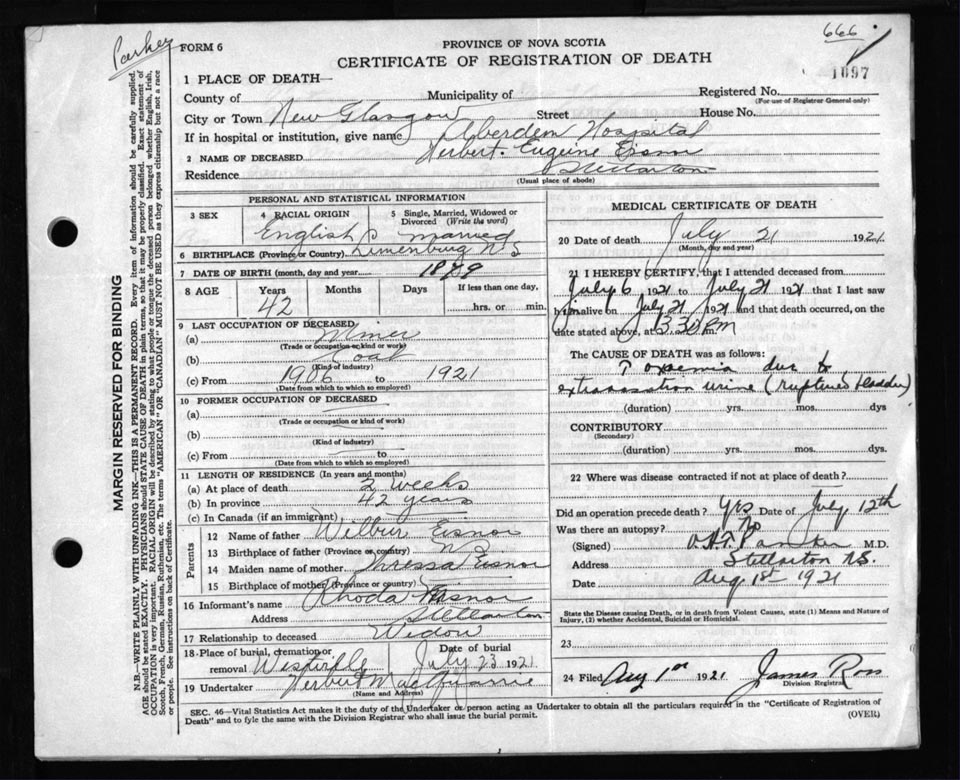 Parker
666
FORM 6
PROVINCE OF NOVA SCOTIA
CERTIFICATE OF REGISTRATION OF DEATH
1097
MARGIN RESERVED FOR BINDING
N.B.—WRITE PLAINLY WITH UNFADING INK—THIS IS A PERMANENT RECORD. Every item of information should be carefully supplied.
AGE should be stated EXACTLY. PHYSICIANS should STATE CAUSE OF DEATH in plain terms, so that it may be properly classified. Exact statement of
OCCUPATION is very important. RACIAL ORIGIN will be described by stating to what people or tongue the deceased person belonged whether English, Irish,
Scotch, French, German, Russian, Ruthenian, etc. The terms "AMERICAN" OR "CANADIAN" MUST NOT BE USED as they express citizenship but not a race
or people. See instructions on back of Certificate.
1 PLACE OF DEATH—
County of Municipality of Registered No.
(For use of Registrar General only)
City or Town New Glasgow Street House No.
If in hospital or institution, give name Aberdeen Hospital
2 NAME OF DECEASED Herbert Eugeine Eisnor
Residence Stellarton
(Usual place of abode)
PERSONAL AND STATISTICAL INFORMATION
3 SEX 4 RACIAL ORIGIN 5 Single, Married, Widowed or Divorced (Write the word)
English Married
6 BIRTHPLACE (Province or Country) Lunenburg N S
7 DATE OF BIRTH (month, day and year) 1879
8 AGE Years Months Days If less than one day,
42 hrs. or min.
9 LAST OCCUPATION OF DECEASED
(a) Miner
(Trade or occupation or kind or work)
(b) Coal
(Kind of industry)
(c) From 1906 to 1921
(Date from which to which so employed)
10 FORMER OCCUPATION OF DECEASED
(a)
(Trade or occupation or kind of work)
(b)
(Kind of industry)
(c) From to
(Date from which to which so employed)
11 LENGTH OF RESIDENCE (In years and months)
(a) At place of death 2 weeks
(b) In province 42 years
(c) In Canada (if an immigrant)
Parents
12 Name of father Wilbur Eisnor
13 Birthplace of father (Province or country) N S
14 Maiden name of mother Thressa Eisnor
15 Birthplace of mother (Province or country)
16 Informant's name Rhoda Eisnor
Address Stellarton
17 Relationship to deceased Widow
18 Place of burial, cremation or removal Westville Date of burial July 23 1921
19 Undertaker Herbert MacQuarrie
(Name and Address)
MEDICAL CERTIFICATE OF DEATH
20 Date of death July 21 1921
(Month, day and year)
21 I HEREBY CERTIFY, that I attended deceased from
July 6 1921 to July 21 1921 that I last saw
him alive on July 21 1921 and that death occurred, on the
date stated above, at 3.30 PM m.
The CAUSE OF DEATH was as follows:
Toxaemia due to
extravasation urine (ruptured bladder)
(duration) yrs. mos. dys
CONTRIBUTORY
(Secondary)
(duration) yrs. mos. dys.
22 Where was disease contracted if not at place of death?
Did an operation precede death? Yes Date of July 12th
Was there an autopsy? No
(Signed) Parker M.D.
Address Stellarton N.S.
Date Aug 1st 1921
State the Disease causing Death, or in death from Violent Causes, state (1) Means and Nature of
Injury, (2) whether Accidental, Suicidal or Homicidal.
23
24 Filed Aug 1st 1921 James Ross
Division Registrar
SEC. 46—Vital Statistics Act makes it the duty of the Undertaker or person acting as Undertaker to obtain all the particulars required in the "Certificate of Registration of
Death" and to fyle the same with the Division Registrar who shall issue the burial permit.
(OVER)